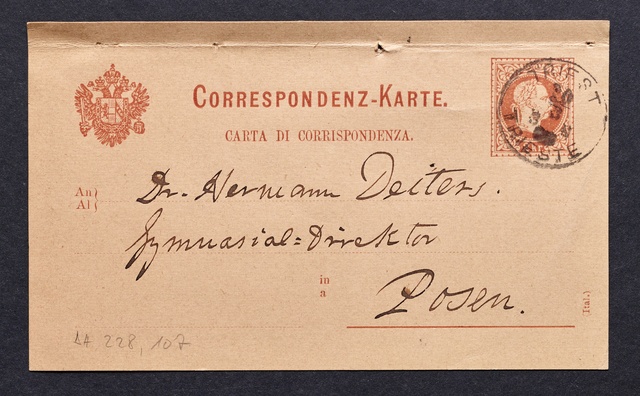 CORRESPONDENZ-KARTE.
CARTA DI CORRISPONDENZA.
TRIEST
TRIESTE
An}
Al}
Dr. Hermann Deiters.
Gymnasial=Direktor
in
a
Posen.
(Ital.)
AA 228, 107